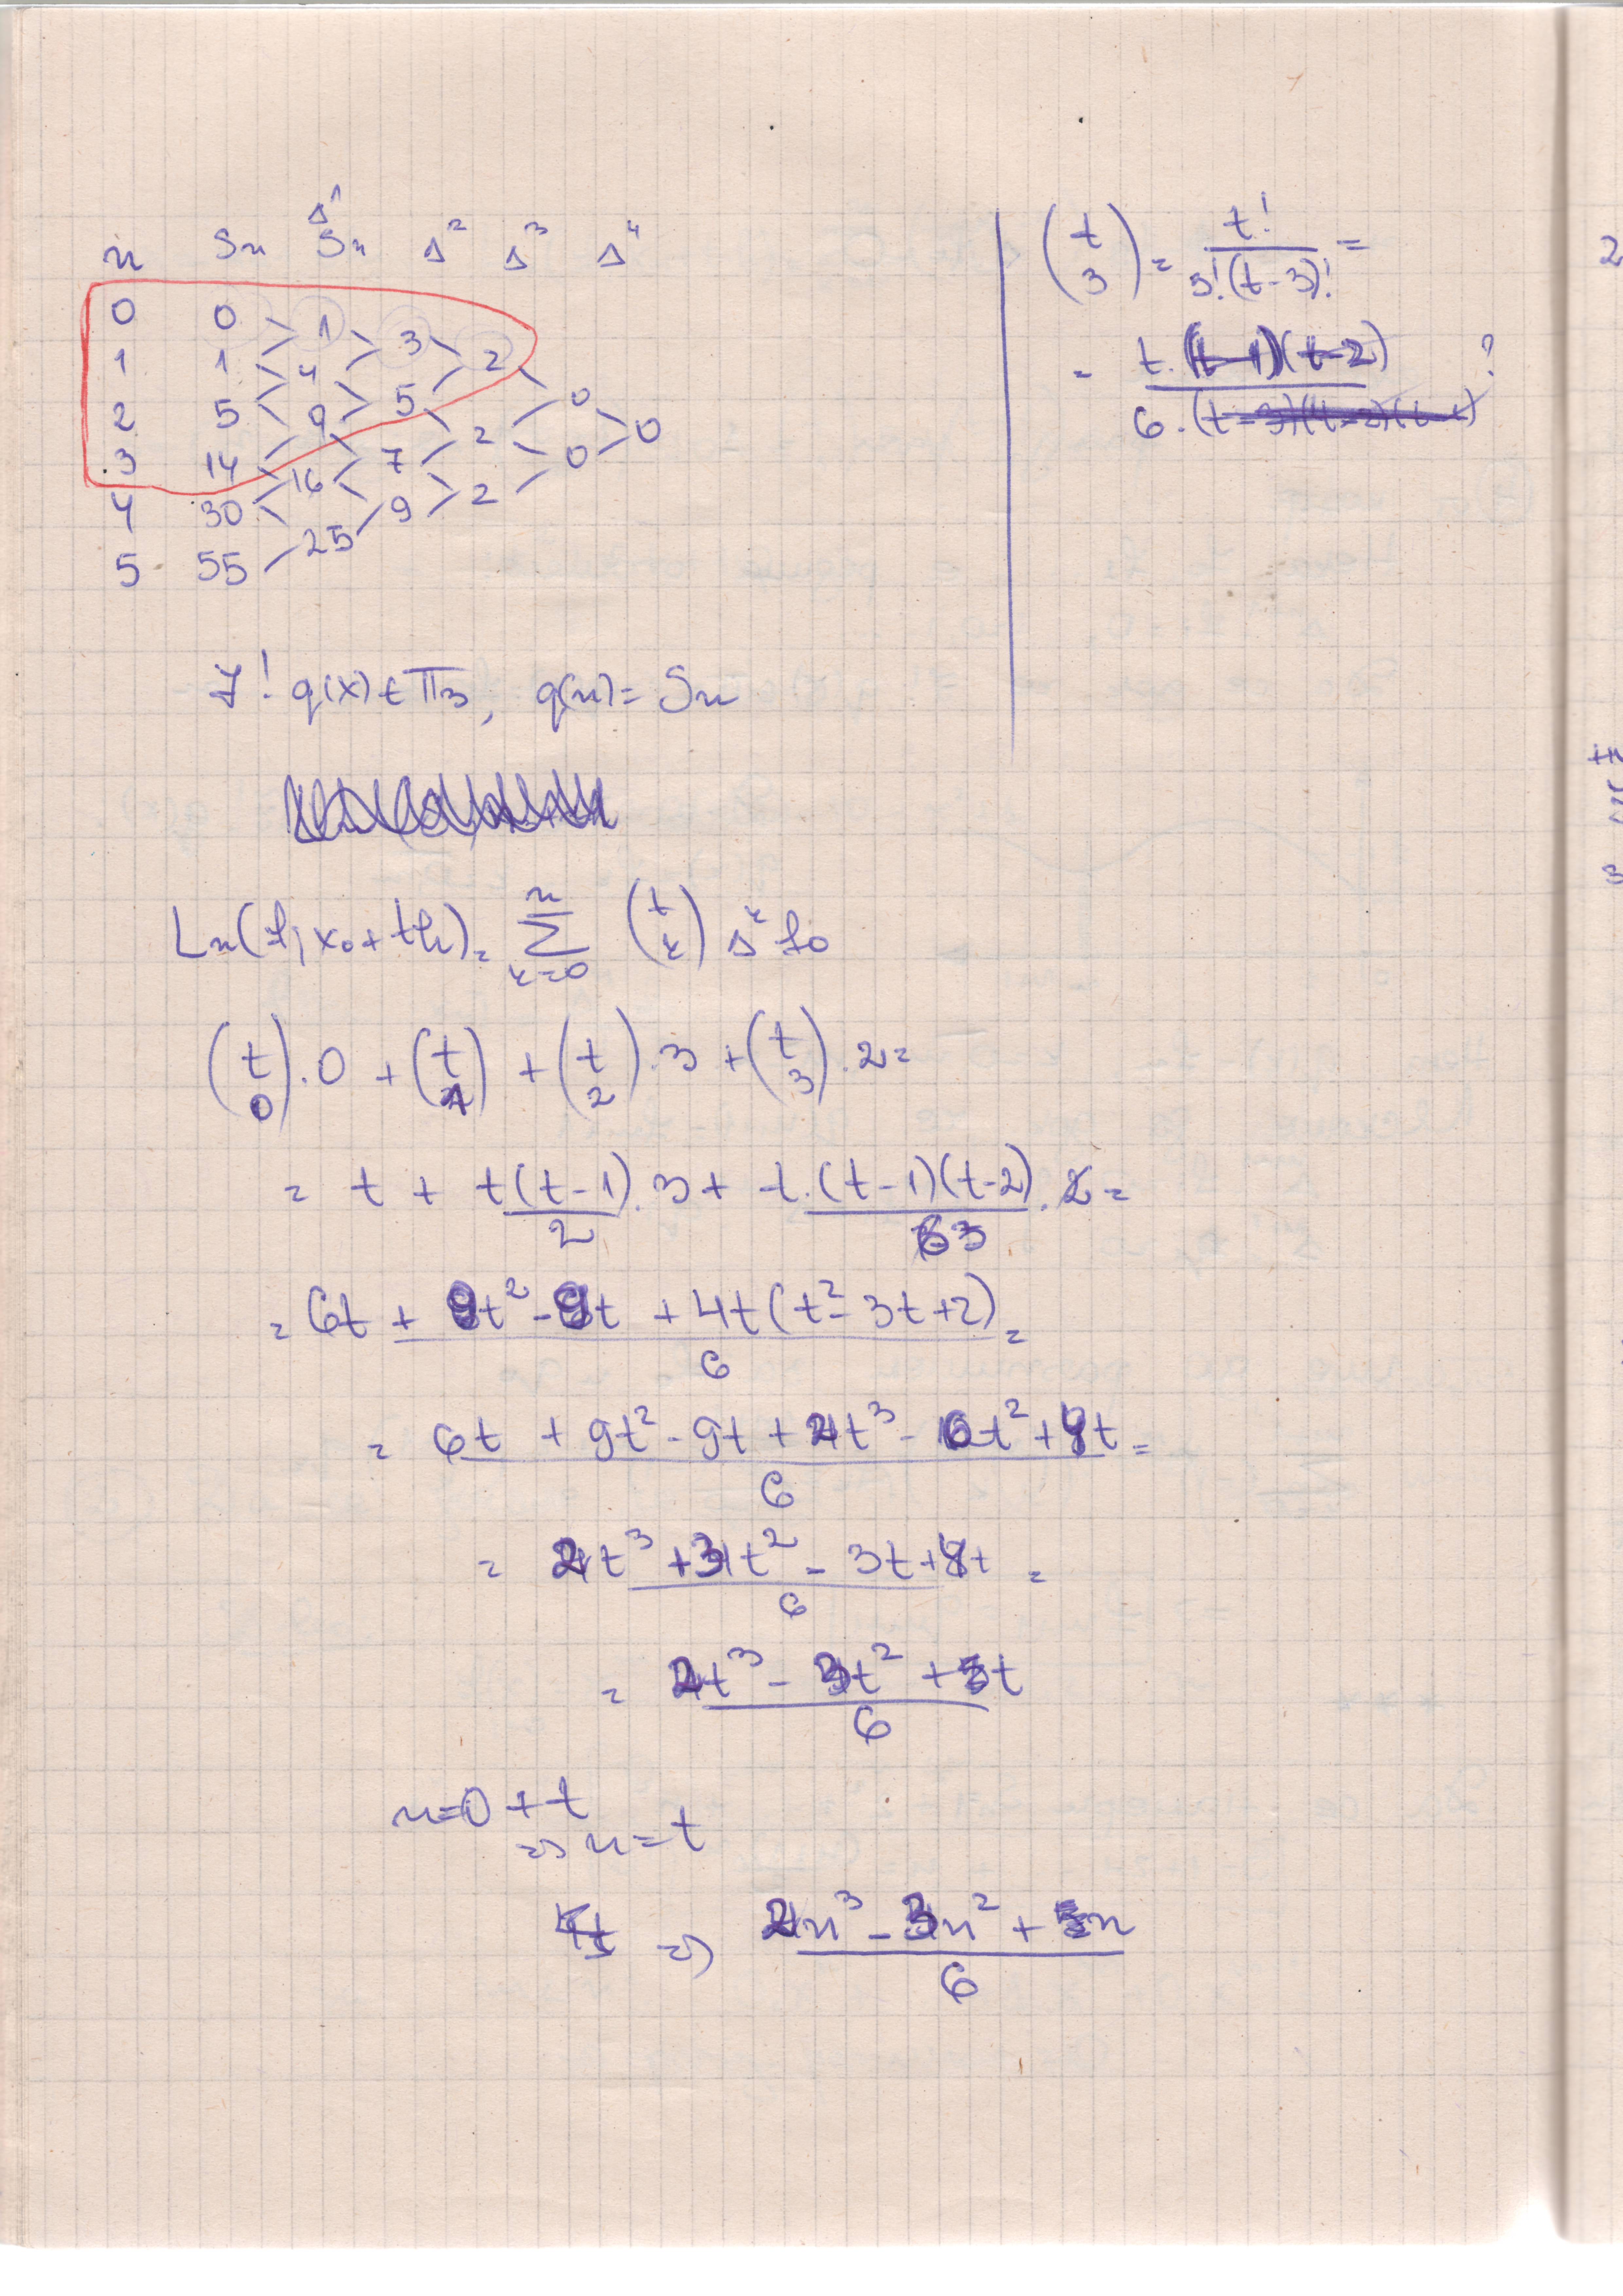 n Sn Δ¹Sn Δ² Δ³ Δ⁴
0 0 1 3 2 0 0
1 1 4 5 2 0
2 5 9 7 2
3 14 16 9
4 30 25
5 55
∃! q(x) ∈ Π₃, q(n) = Sn
Ln(f, x₀ + th) = Σ_{k=0}^{n} (t k) Δᵏ f₀
(t 0).0 + (t 1) + (t 2).3 + (t 3).2 =
= t + t(t-1)/2 .3 + t.(t-1)(t-2)/3 =
= 6t + 9t² - 9t + 4t(t² - 3t + 2) / 6 =
= 6t + 9t² - 9t + 2t³ - 6t² + 4t / 6 =
= 2t³ + 3t² - 3t + 4t / 6 =
= 2t³ - 3t² + t / 6
n = 0 + t
=> n = t
=> 2n³ - 3n² + n / 6
(t 3) = t! / 3!(t-3)! =
= t.(t-1)(t-2) / 6. ?
2